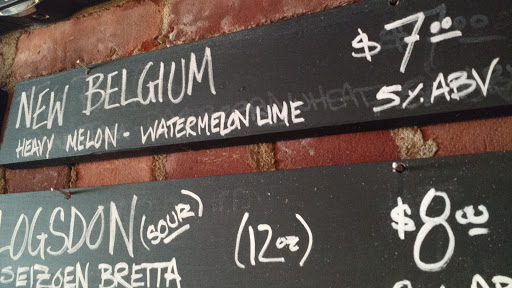 NEW BELGIUM $7.00
HEAVY MELON - WATERMELON LIME 5% ABV
LOGSDON (SOUR) (12oz) $8.00
SEIZOEN BRETTA